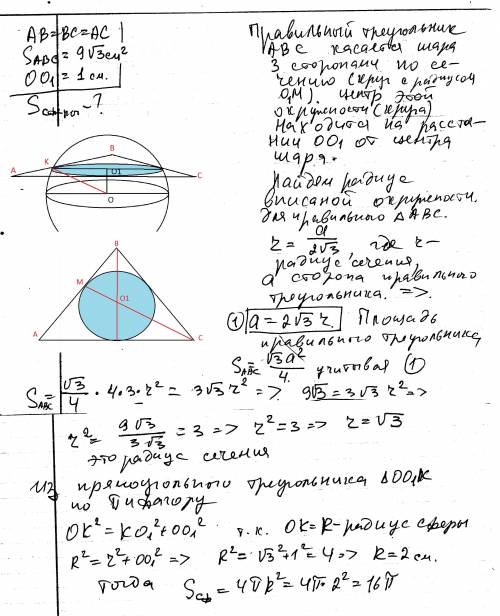 AB=BC=AC
S ABC = 9√3 см²
OO₁ = 1 см.
S сферы - ?
Правильный треугольник
ABC касается шара
3 сторонами по се-
чению (круг с радиусом
O₁M). Центр этой
окружности (круга)
находится на расстоя-
нии OO₁ от центра
шара.
Найдем радиус
вписаной окружности.
Для правильного △ABC.
r = a / 2√3, где r-
радиус сечения,
a сторона правильного
треугольника. =>.
① a = 2√3 r. Площадь
правильного треугольника
S ABC = √3 a² / 4. учитывая ①
A
K
B
O1
C
O
B
M
O1
A
C
S ABC = √3 / 4 · 4·3·r² = 3√3 r² => 9√3 = 3√3 r² =>
r² = 9√3 / 3√3 = 3 => r² = 3 => r = √3
это радиус сечения
Из прямоугольного треугольника △OO₁K
по Пифагору
OK² = KO₁² + OO₁² т.к. OK = R - радиус сферы
R² = r² + OO₁² => R² = √3² + 1² = 4 => R = 2 см.
тогда S сф = 4πR² = 4π·2² = 16π